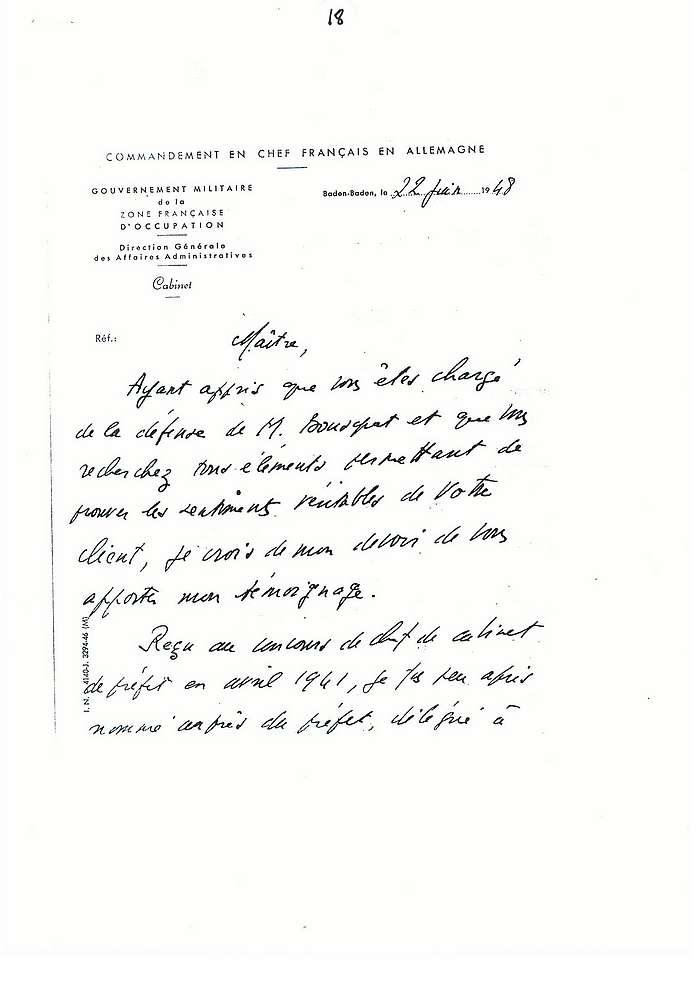 18
COMMANDEMENT EN CHEF FRANÇAIS EN ALLEMAGNE
GOUVERNEMENT MILITAIRE
de la
ZONE FRANÇAISE
D'OCCUPATION
Direction Générale
des Affaires Administratives
Cabinet
Baden-Baden, le 22 juin 1948
Réf.:
Maître,
Ayant appris que vous êtes chargé
de la défense de M. Bousquet et que vous
recherchez tous éléments permettant de
prouver les sentiments véritables de votre
client, je crois de mon devoir de vous
apporter mon témoignage.
Reçu au concours de chef de cabinet
de préfet en avril 1941, je fus peu après
nommé auprès du préfet, délégué à
I. N. 4140-J. 3294-46 (M)